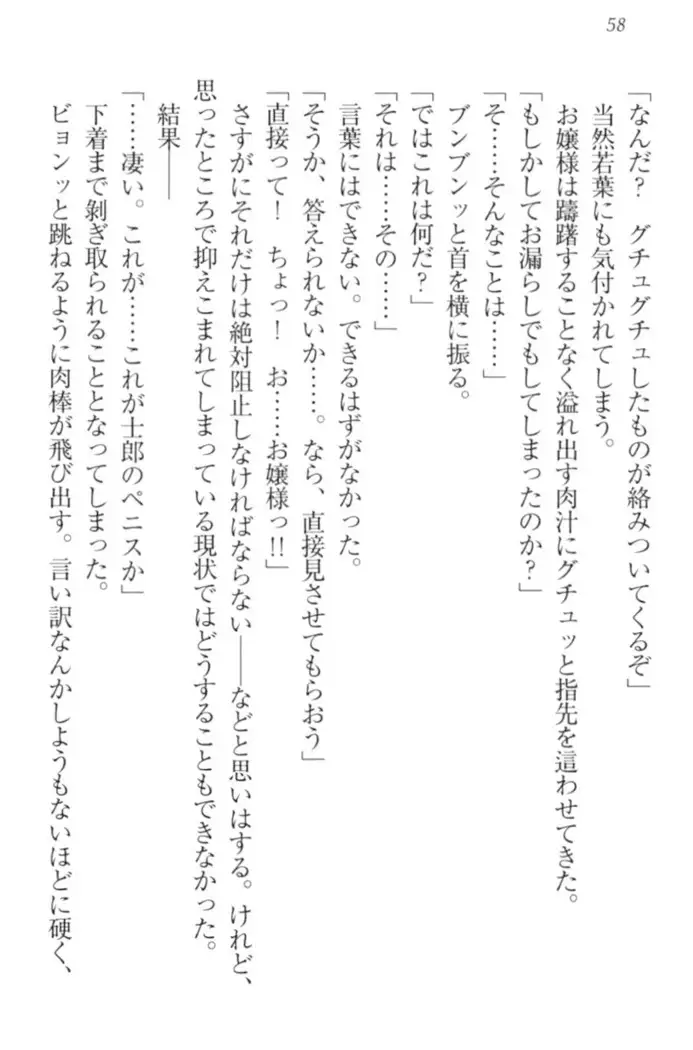 58
「なんだ？　グチュグチュしたものが絡みついてくるぞ」
当然若葉にも気付かれてしまう。
お嬢様は躊躇することなく溢れ出す肉汁にグチュッと指先を這わせてきた。
「もしかしてお漏らしでもしてしまったのか？」
「そ……そんなことは……」
ブンブンッと首を横に振る。
「ではこれは何だ？」
「それは……その……」
言葉にはできない。できるはずがなかった。
「そうか、答えられないか……。なら、直接見させてもらおう」
「直接って！　ちょっ！　お……お嬢様っ!!」
さすがにそれだけは絶対阻止しなければならない――などと思いはする。けれど、
思ったところで抑えこまれてしまっている現状ではどうすることもできなかった。
結果――
「……凄い。これが……これが士郎のペニスか」
下着まで剝ぎ取られることとなってしまった。
ビョンッと跳ねるように肉棒が飛び出す。言い訳なんかしようもないほどに硬く、